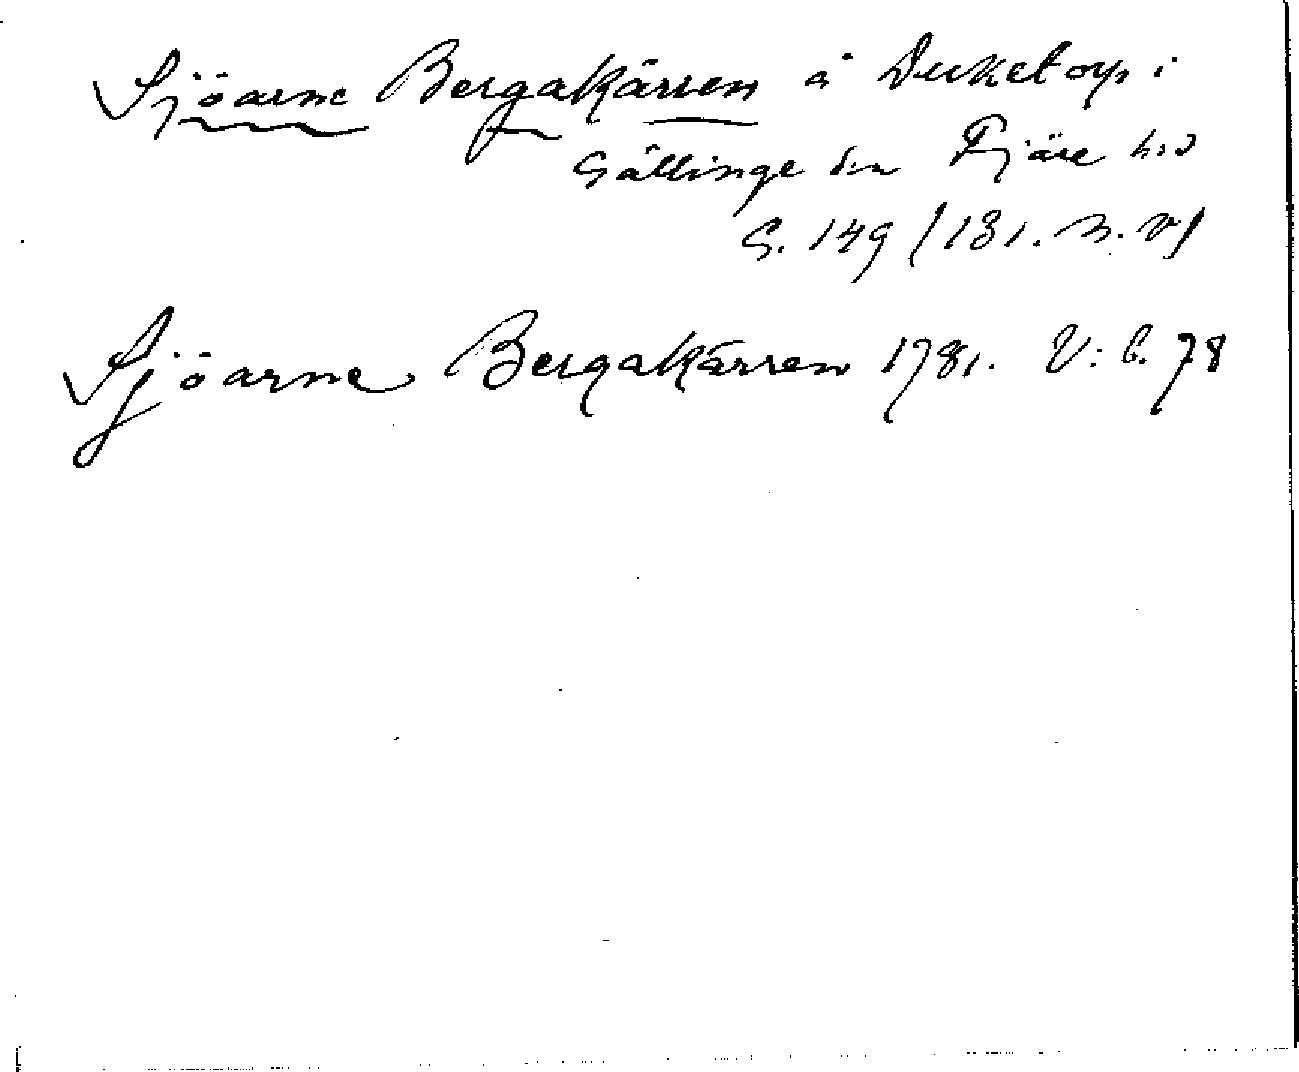 Sjöarne Bergakärren å Duketorp i
Gällinge sn Fjäre hd
G. 149 (131. n. v)
Sjöarne Bergakärren 1781. V: 6. 78